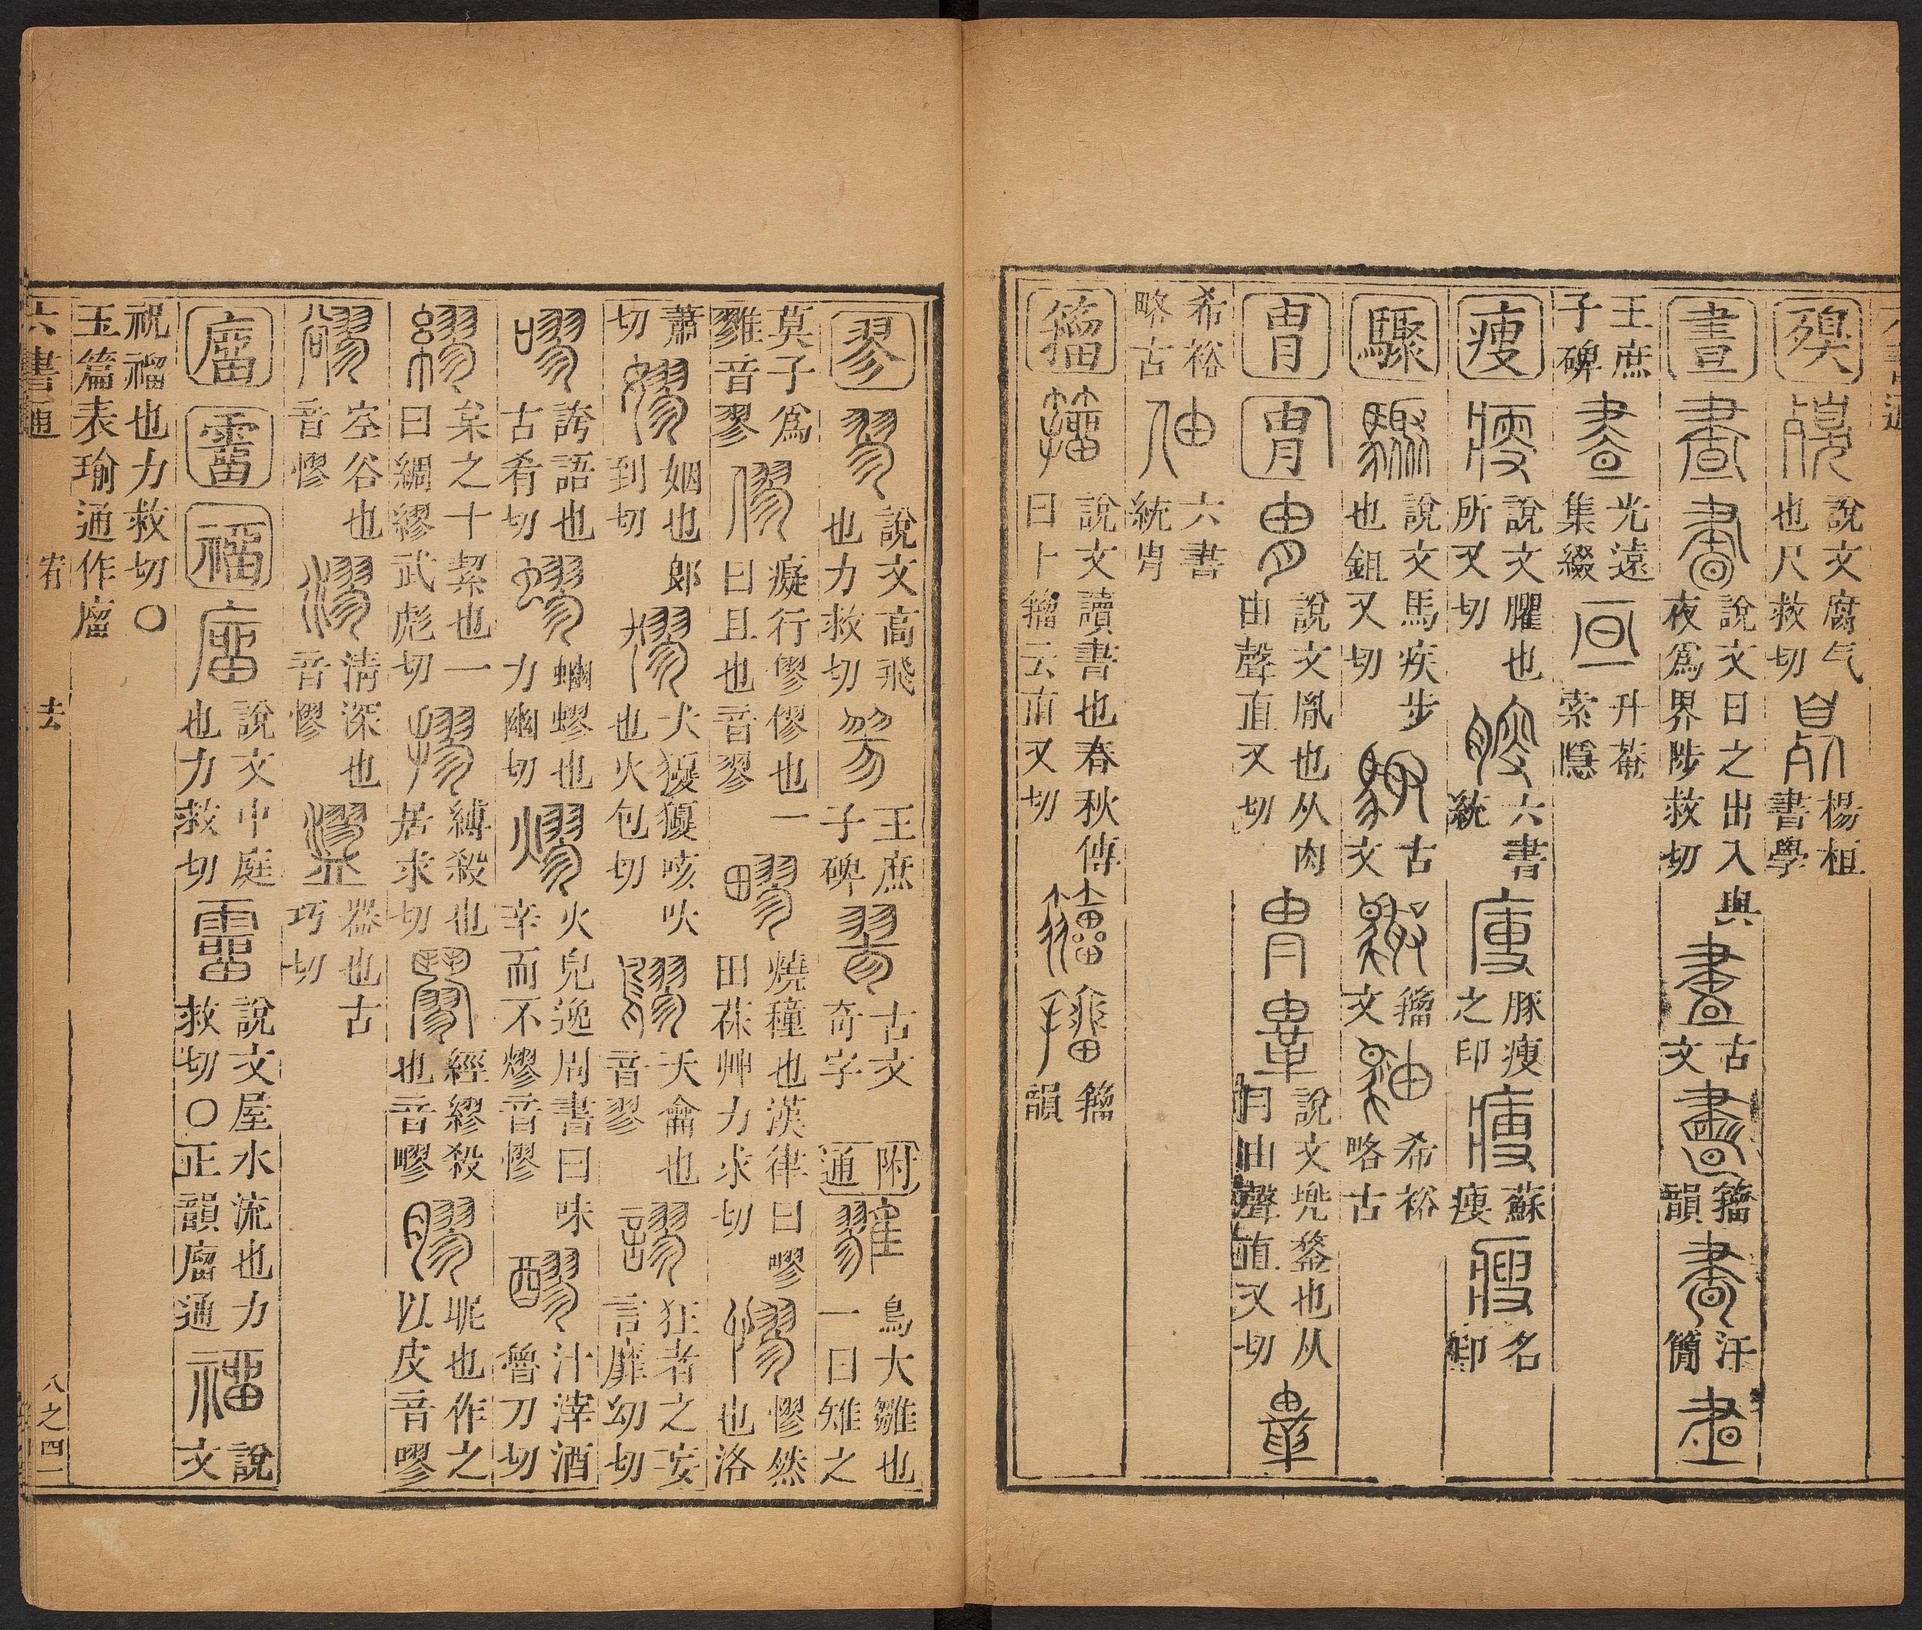 殠 說文腐气也尺救切 楊桓書學
晝 說文日之出入與夜爲界陟救切 古文 籀韻 汗簡
王庶子碑 光遠集綴 升菴索隱
瘦 說文臞也所又切 六書統 豚瘦之印 蘇瘦 名印
驟 說文馬疾步也鉏又切 古文 籀文 希裕略古
冑 胄 說文胤也从肉由聲直又切 說文兜鍪也从冃由聲直又切
希裕略古 六書統冑
籀 說文讀書也春秋傳曰卜籀云直又切 籀韻
翏 說文高飛也力救切 王庶子碑 古文奇字 附通 雡 鳥大雛也一曰雉之
莫子爲雡音翏 僇 癡行僇僇也一曰且也音翏 疁 燒穜也漢律曰疁田茠艸力求切 憀 憀然也洛
蕭切 嫪 婟也郎到切 獿 犬獿獿咳吠也火包切 天龠也音翏 謬 狂者之妄言靡幼切
嘐 誇語也古肴切 蟉 蟉也力幽切 熮 火皃逸周書曰味辛而不熮音憀 醪 汁滓酒魯刀切
繆 枲之十絜也一曰綢繆武彪切 摎 縛殺也居求切 經繆殺也音疁 膠 昵也作之以皮音嘐
豂 空谷也音憀 漻 清深也音憀 器也古巧切
廇 霤 䄂 說文中庭也力救切 說文屋水流也力救切〇正韻廇通 說文
祝䄂也力救切〇玉篇表瑜通作廇
六書通 宥 去 八之四一